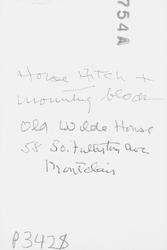 754A
Horse Hitch +
mounting block
Old Wilde House
58 So. Fullerton Ave
Montclair
P3428